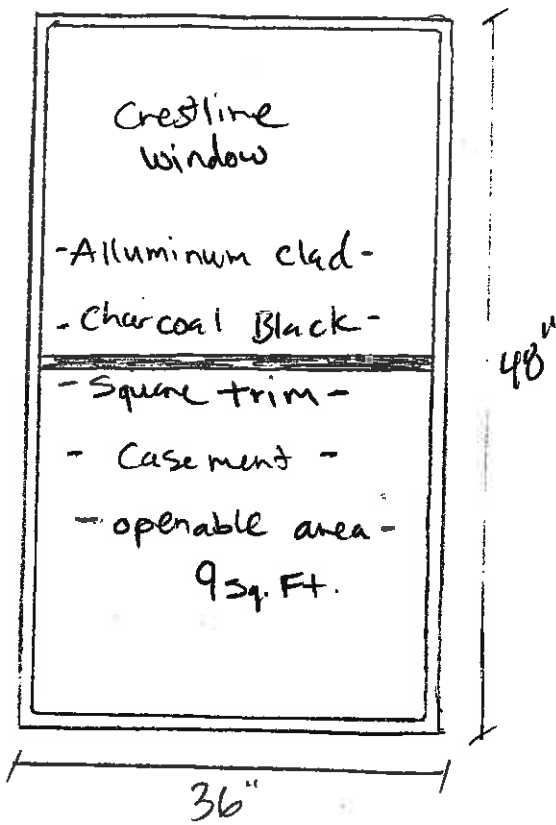 Crestline
window
-Alluminum clad-
- Charcoal Black -
- Square trim -
- Casement -
- openable area -
9 sq. Ft.
48"
36"